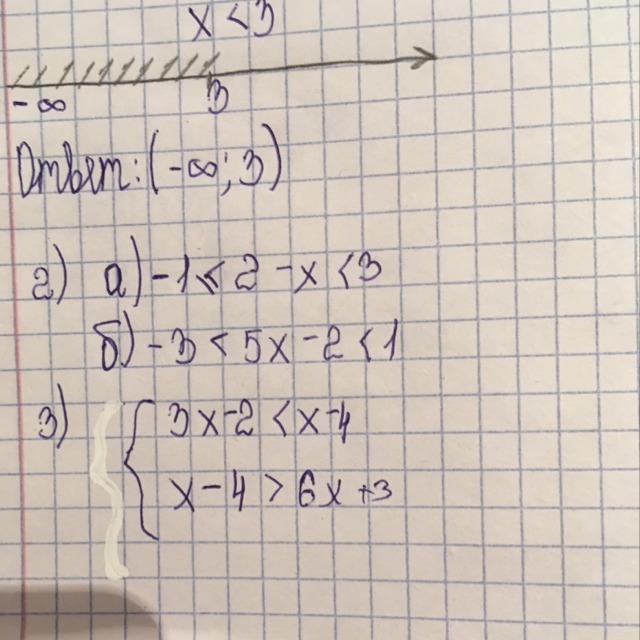 x < 3
-∞ 3
Ответ: (-∞; 3)
2) а) -1 < 2 - x < 3
б) -3 < 5x - 2 < 1
3) 3x - 2 < x - 4
x - 4 > 6x + 3